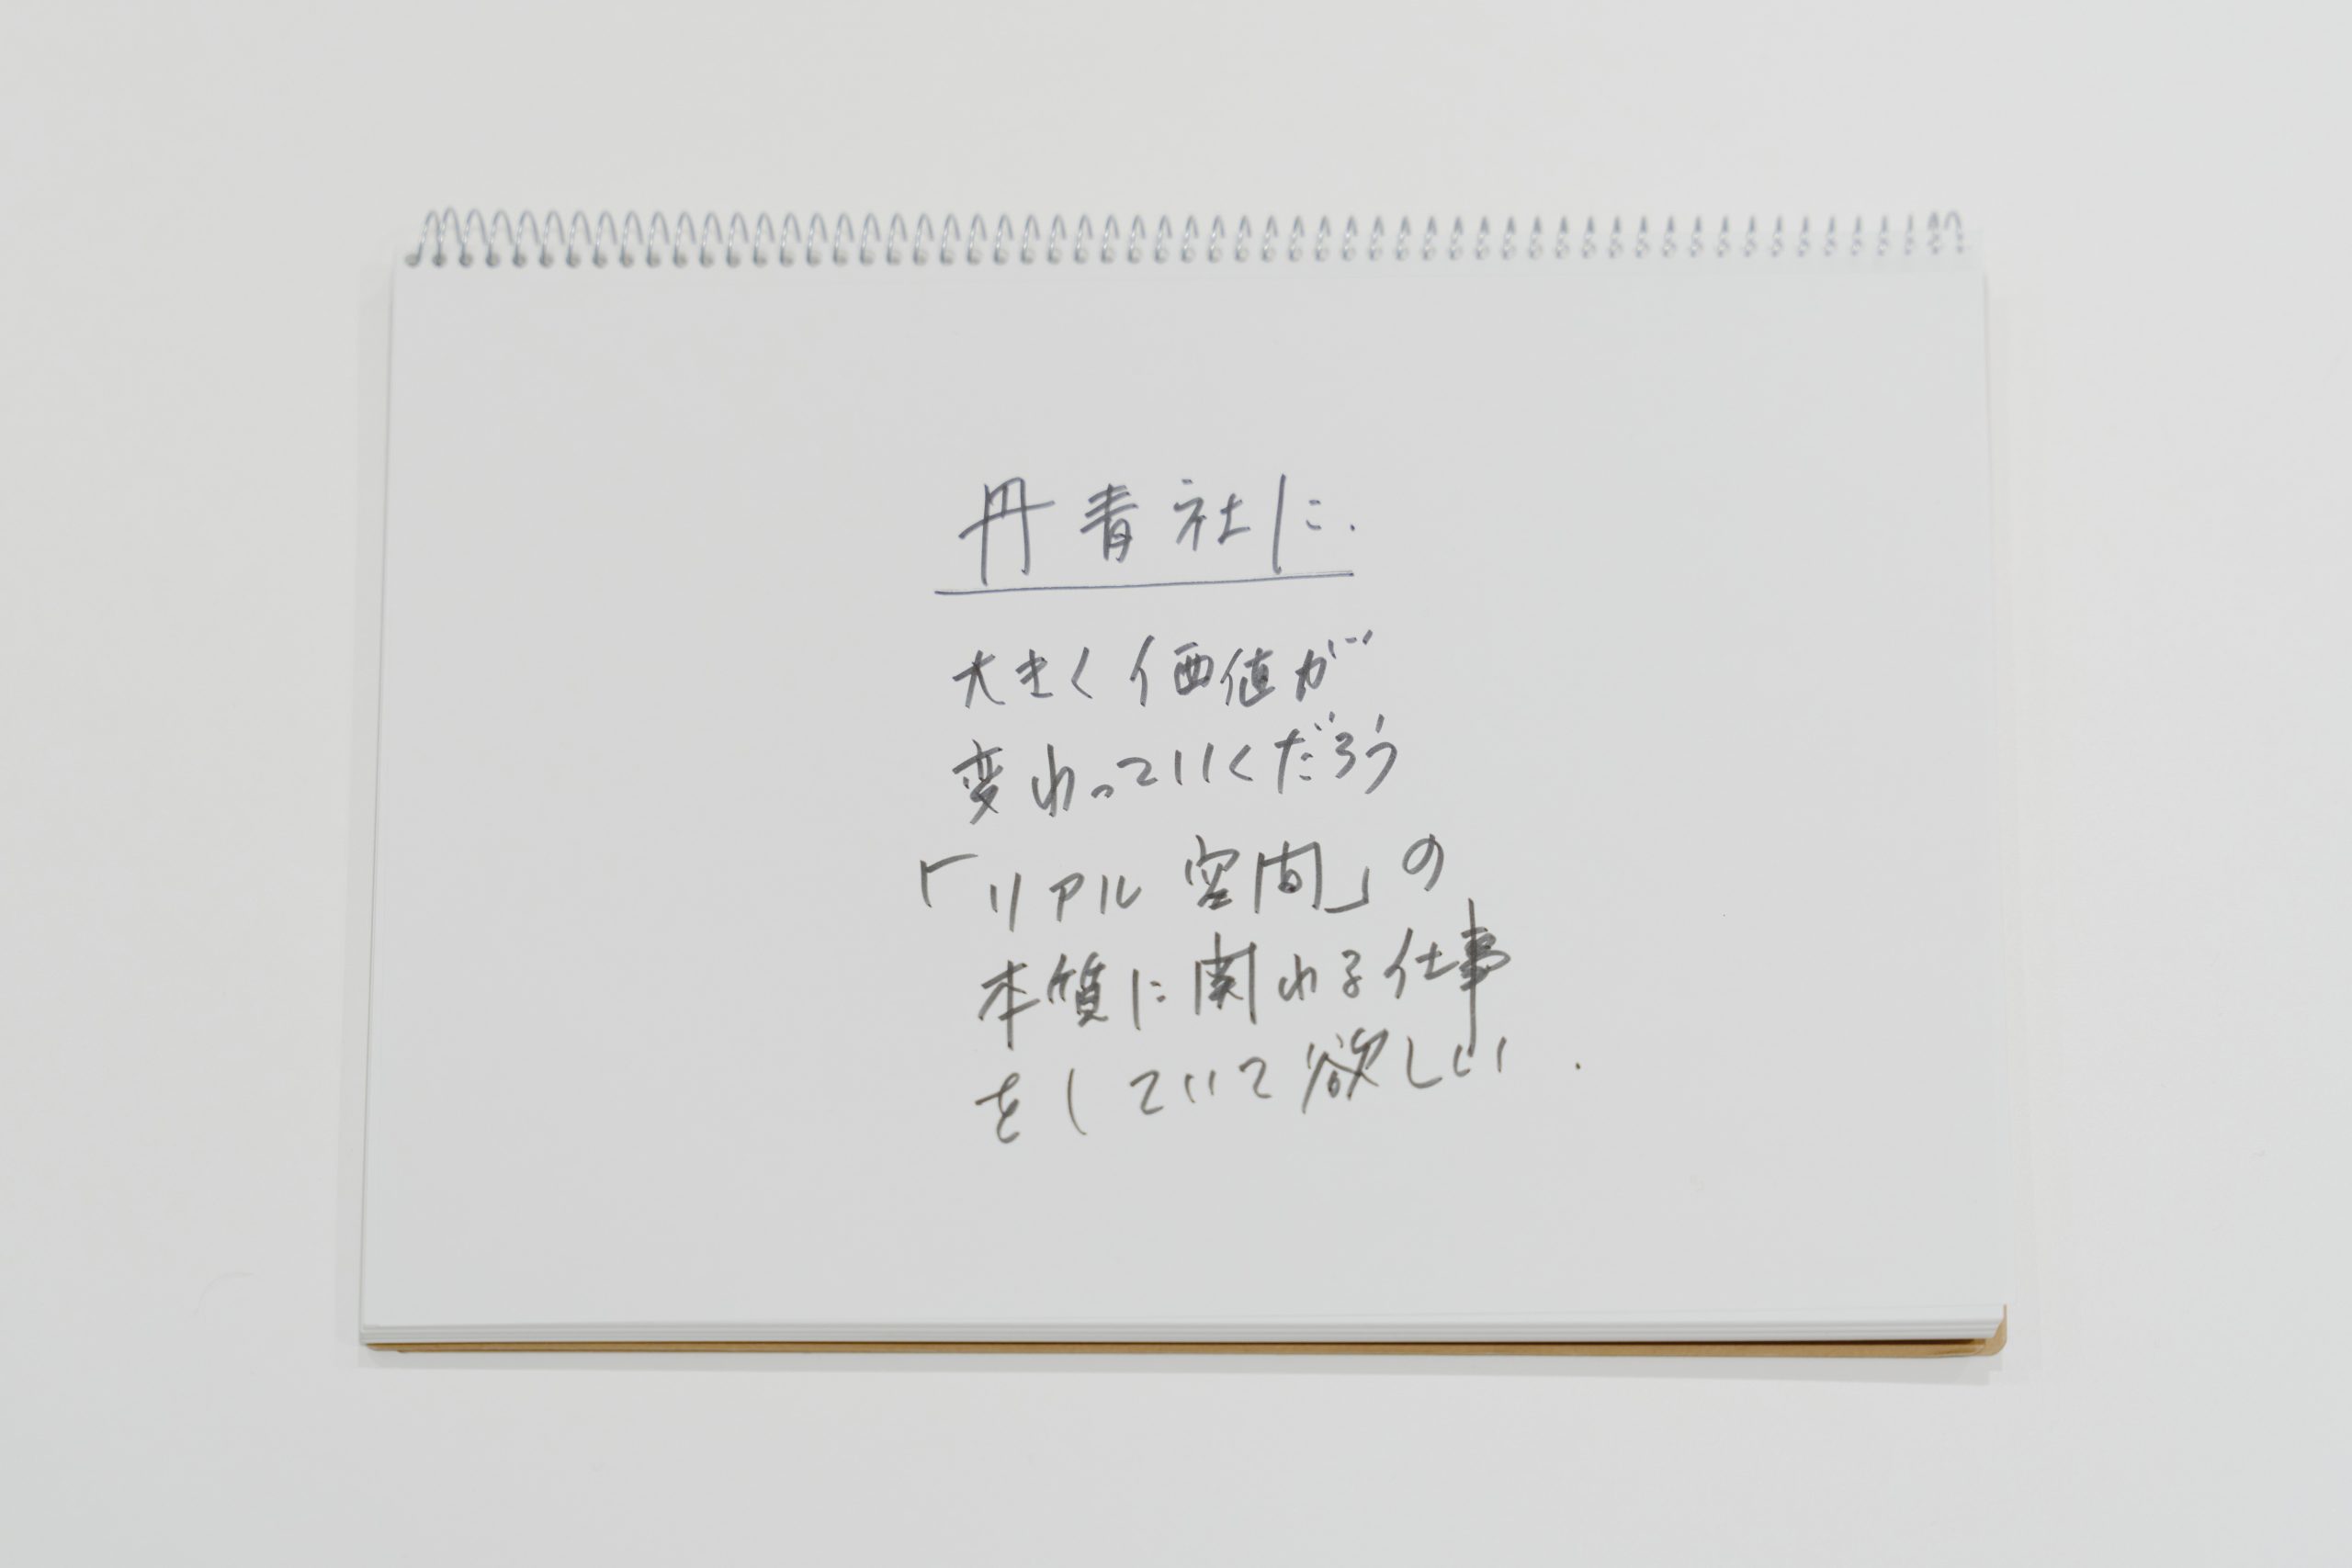 丹青社に.
大きく価値が
変わっていくだろう
「リアル空間」の
本質に関われる仕事
をしていて欲しい.